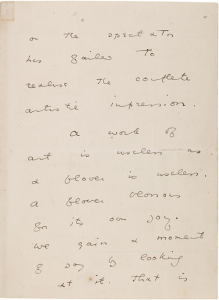 or the spectator
has failed to
realise the complete
artistic impression.
A work of
art is useless as
a flower is useless.
A flower blossoms
for its own joy.
We gain a moment
of joy by looking
at it. That is